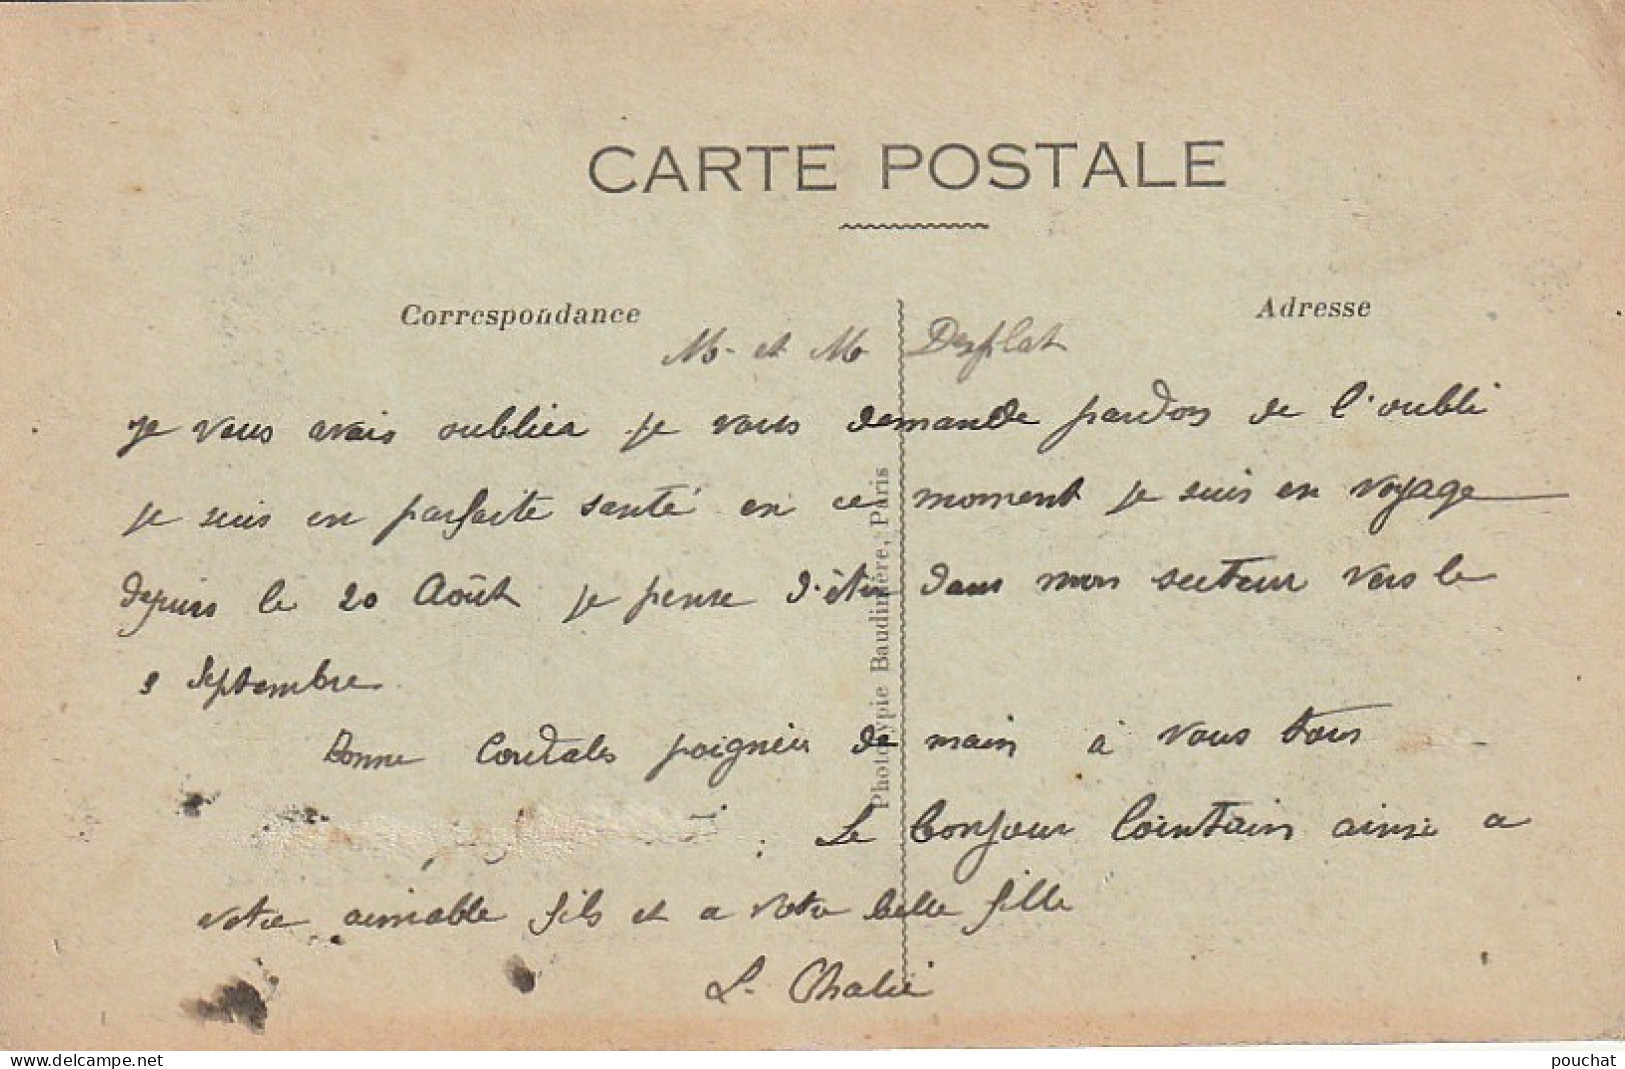 CARTE POSTALE
Correspondance
Adresse
M. et M Desplat
je vous avais oublier je vous demande pardon de l'oubli
je suis en parfaite santé en ce moment je suis en voyage
depuis le 20 Août je pense d'être dans mon secteur vers le
9 Septembre
Bonne Cordales poigneés de main à vous tous
Le bonjour lointain ainsi a
votre aimable fils et a votre belle fille
L. Chalié
Phototypie Baudinière, Paris
www.delcampe.net
pouchat